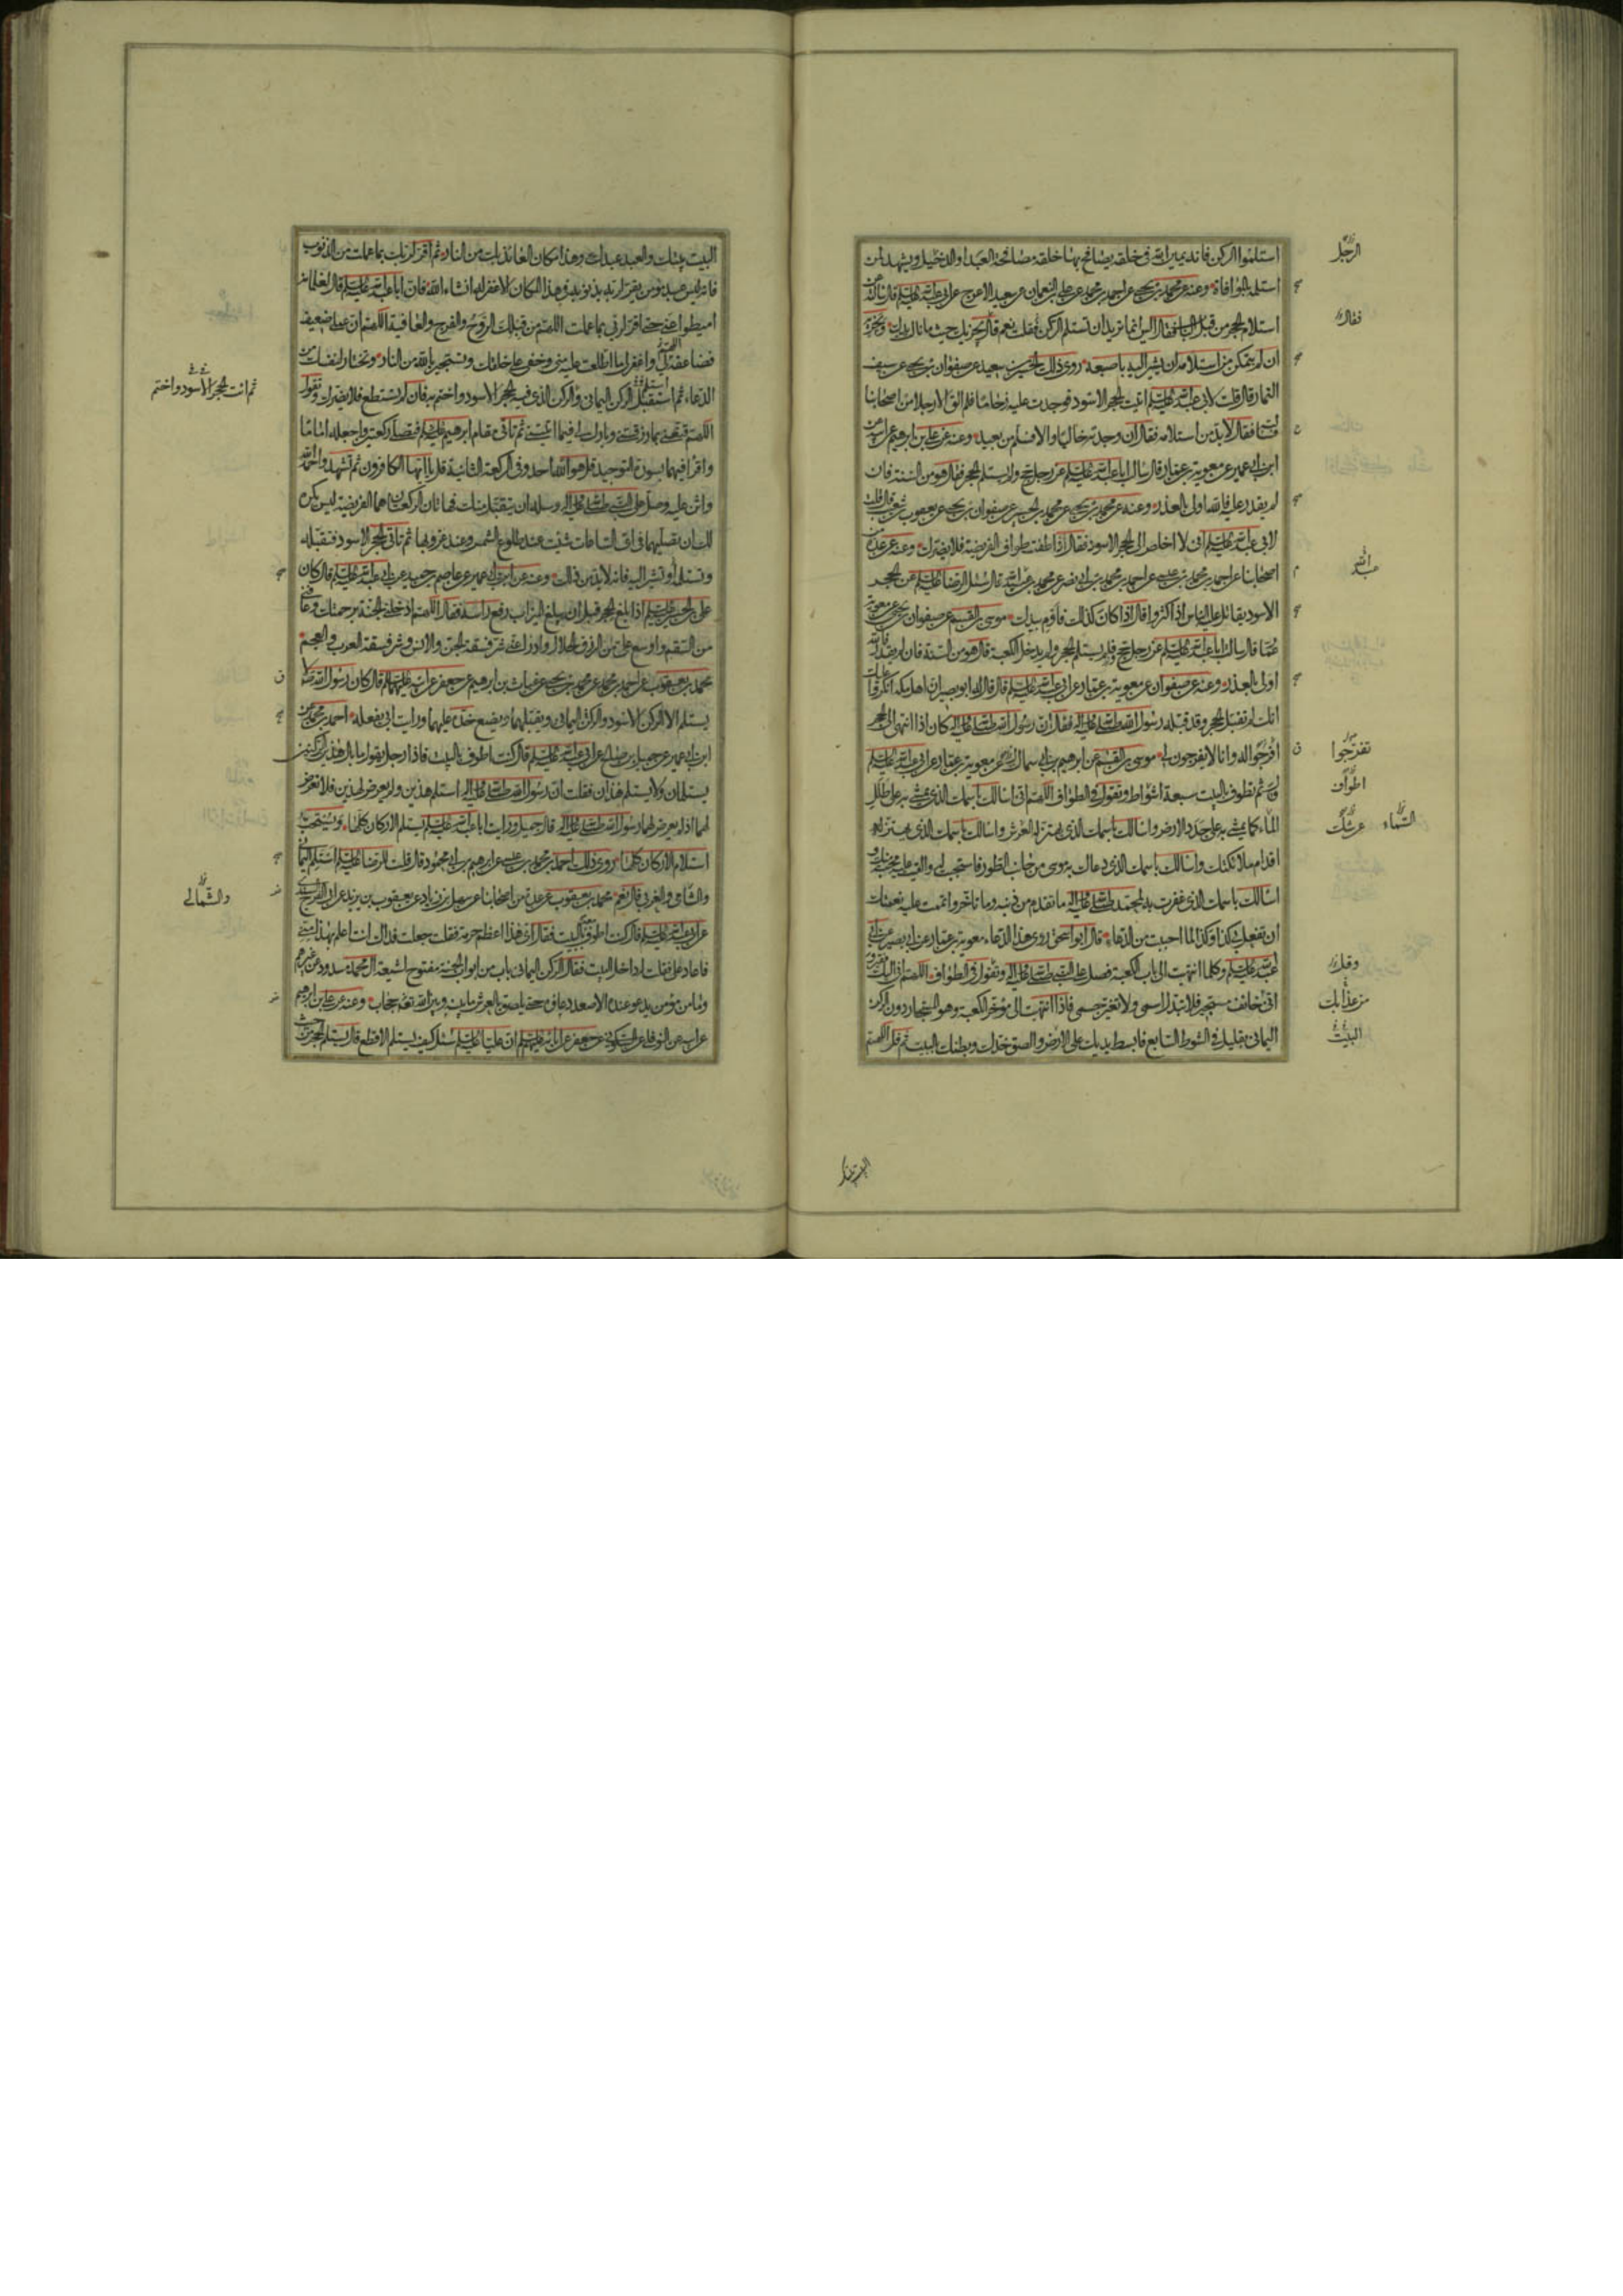 استلموا الركن فانه يمين الله في خلقه يصافح بها خلقه مصافحة العبد او الدخيل ويشهد لمن
استلمه بالموافاة وعنه عن محمد بن يحيى عن احمد بن محمد عن علي بن النعمان عن سعيد الاعرج عن ابي عبد الله عليه السلم قال سألته عن
استلام الحجر من قبل الباب فقال اليس انما تريد ان تستلم الركن فقلت نعم قال يجزيك حيث ما نالت يدك ويجزيه
ان لم يتمكن من استلامه ان يشير اليه باصبعه روى ذلك الحسين بن سعيد عن صفوان بن يحيى عن سيف
التمار قال قلت لابي عبد الله عليه السلم اتيت الحجر الاسود فوجدت عليه زحاما فلم الق الا رجلا من اصحابنا
فسألته فقال لا بد من استلامه فقال ان وجدته خاليا والا فسلم من بعيد وعنه عن علي بن ابرهيم عن ابيه عن
ابن ابي عمير عن معوية بن عمار قال سالت ابا عبد الله عليه السلم عن رجل حج ولم يستلم الحجر فقال هو من السنة فان
لم يقدر عليه فالله اولى بالعذر وعنه عن محمد بن يحيى عن محمد بن الحسين عن صفوان بن يحيى عن يعقوب بن شعيب قال قلت
لابي عبد الله عليه السلم اني لا اخلص الى الحجر الاسود فقال اذا طفت طواف الفريضة فلا يضرك وعنه عن عدة من
اصحابنا عن احمد بن محمد بن عيسى عن احمد بن محمد بن ابي نصر عن محمد بن عبيد الله قال سئل الرضا عليه السلم عن الحجر
الاسود يقاتل عليه الناس اذا اكثروا قال اذا كان كذلك فاوم بيدك موسى بن القسم عن صفوان بن يحيى عن معوية
بن عمار قال سالت ابا عبد الله عليه السلم عن رجل حج فلم يستلم الحجر ولم يدخل الكعبة قال هو من السنة فان لم يقدر فالله
اولى بالعذر وعنه عن صفوان عن معوية بن عمار عن ابي عبد الله عليه السلم قال قال له ابو بصير ان اهل مكة انكروا عليك
انك لم تقبل الحجر وقد قبله رسول الله صلى الله عليه واله فقال ان رسول الله صلى الله عليه واله كان اذا انتهى الى الحجر
افرجوا له وانا لا يفرجون لي موسى بن القسم عن ابرهيم بن ابي سمال عن معوية بن عمار عن ابي عبد الله عليه السلم
قال ثم تطوف بالبيت سبعة اشواط وتقول في الطواف اللهم اني اسالك باسمك الذي يمشي به على طلل
الماء كما يمشي به على جدد الارض واسالك باسمك الذي يهتز له العرش واسالك باسمك الذي يهتز له
اقدام ملائكتك واسالك باسمك الذي دعاك به موسى من جانب الطور فاستجبت له والقيت عليه محبة منك و
اسالك باسمك الذي غفرت به لمحمد صلى الله عليه واله ما تقدم من ذنبه وما تاخر واتممت عليه نعمتك
ان تفعل بي كذا وكذا لما احببت من الدعاء قال ابو اسحق روى هذا الدعاء معوية بن عمار عن ابي بصير عن ابي
عبد الله عليه السلم وكلما انتهيت الى باب الكعبة فصل على النبي صلى الله عليه واله وتقول في الطواف اللهم اني اليك فقير و
اني خائف مستجير فلا تبدل اسمي ولا تغير جسمي فاذا انتهيت الى مؤخر الكعبة وهو المستجار دون الركن
اليماني بقليل في الشوط السابع فابسط يديك على الارض والصق خدك وبطنك بالبيت ثم قل اللهم
الرجل
فقال
عبد الله
تفرجوا
اطواف
السماء
عرشك
وقل
من عذابك
البيت
البيت بيتك
البيت بيتك والعبد عبدك وهذا مكان العائذ بك من النار ثم اقر لربك بما عملت من الذنوب
فانه ليس عبد مؤمن يقر لربه بذنوبه في هذا المكان الا غفر له ان شاء الله فان ابا عبد الله عليه السلم قال لغلمانه
اميطوا عني حتى اقر لربي بما عملت اللهم من قبلك الروح والفرج والعافية اللهم ان عملي ضعيف
فضاعفه لي واغفر لي ما اطلعت عليه مني وخفي على خلقك وتستجير بالله من النار وتختار لنفسك من
الدعاء ثم استقبل الركن اليماني والركن الذي فيه الحجر الاسود واختم به فان لم تستطع فلا يضرك وتقول
اللهم قنعني بما رزقتني وبارك لي فيما اتيتني ثم تاتي مقام ابرهيم عليه السلم فتصلي ركعتين واجعله اماما
واقرا فيهما بسورة التوحيد قل هو الله احد وفي الركعة الثانية قل يا ايها الكافرون ثم تشهد واحمد الله
واثن عليه وصل على النبي صلى الله عليه واله وسله ان يتقبل منك فهاتان الركعتان هما الفريضة ليس يكره
لك ان تصليهما في اي الساعات شئت عند طلوع الشمس وعند غروبها ثم تاتي الحجر الاسود فتقبله
وتستلمه او تشير اليه فانه لا بد من ذلك وعنه عن ابن ابي عمير عن عاصم بن حميد عن ابي عبد الله عليه السلم قال كان
علي بن الحسين عليه السلم اذا بلغ الحجر قبل ان يبلغ الميزاب رفع راسه فقال اللهم ادخلني الجنة برحمتك وعافني
من السقم واوسع علي من الرزق الحلال وادرا عني شر فسقة الجن والانس وشر فسقة العرب والعجم
محمد بن يعقوب عن احمد بن محمد عن محمد بن يحيى عن غياث بن ابرهيم عن جعفر عن ابيه عليهما السلم قال كان رسول الله صلى الله عليه واله لا
يستلم الا الركن الاسود والركن اليماني ويقبلهما ويضع خده عليهما ورايت ابي يفعله احمد بن محمد عن
ابن ابي عمير عن جميل بن صالح عن ابي عبد الله عليه السلم قال كنت اطوف بالبيت فاذا رجل يقول ما بال هذين الركنين
يستلمان ولا يستلم هذان فقلت ان رسول الله صلى الله عليه واله استلم هذين ولم يعرض لهذين فلا تعرض
لهما اذا لم يعرض لهما رسول الله صلى الله عليه واله قال جميل ورايت ابا عبد الله عليه السلم يستلم الاركان كلها ويستحب
استلام الاركان كلها روى ذلك احمد بن محمد بن عيسى عن ابرهيم بن ابي محمود قال قلت للرضا عليه السلم استلم اليماني
والشامي والغربي قال نعم محمد بن يعقوب عن عدة من اصحابنا عن سهل بن زياد عن يعقوب بن يزيد عن ابي الفرج السندي
عن ابي عبد الله عليه السلم قال كنت اطوف معه بالبيت فقال اي هذا اعظم حرمة فقلت جعلت فداك انت اعلم بهذا مني
فاعاد علي فقلت له داخل البيت فقال الركن اليماني باب من ابواب الجنة مفتوح لشيعة ال محمد مسدود عن غيرهم
وما من مؤمن يدعو عنده الا صعد دعاؤه حتى يلصق بالعرش ما بينه وبين الله تعه حجاب وعنه عن علي بن ابرهيم
عن ابيه عن النوفلي عن السكوني عن جعفر عن ابائه عليهم السلم ان عليا عليه السلم سئل كيف يستلم الاقطع قال يستلم الحجر من حيث
ثم ائت الحجر الاسود واختم
والشمالي